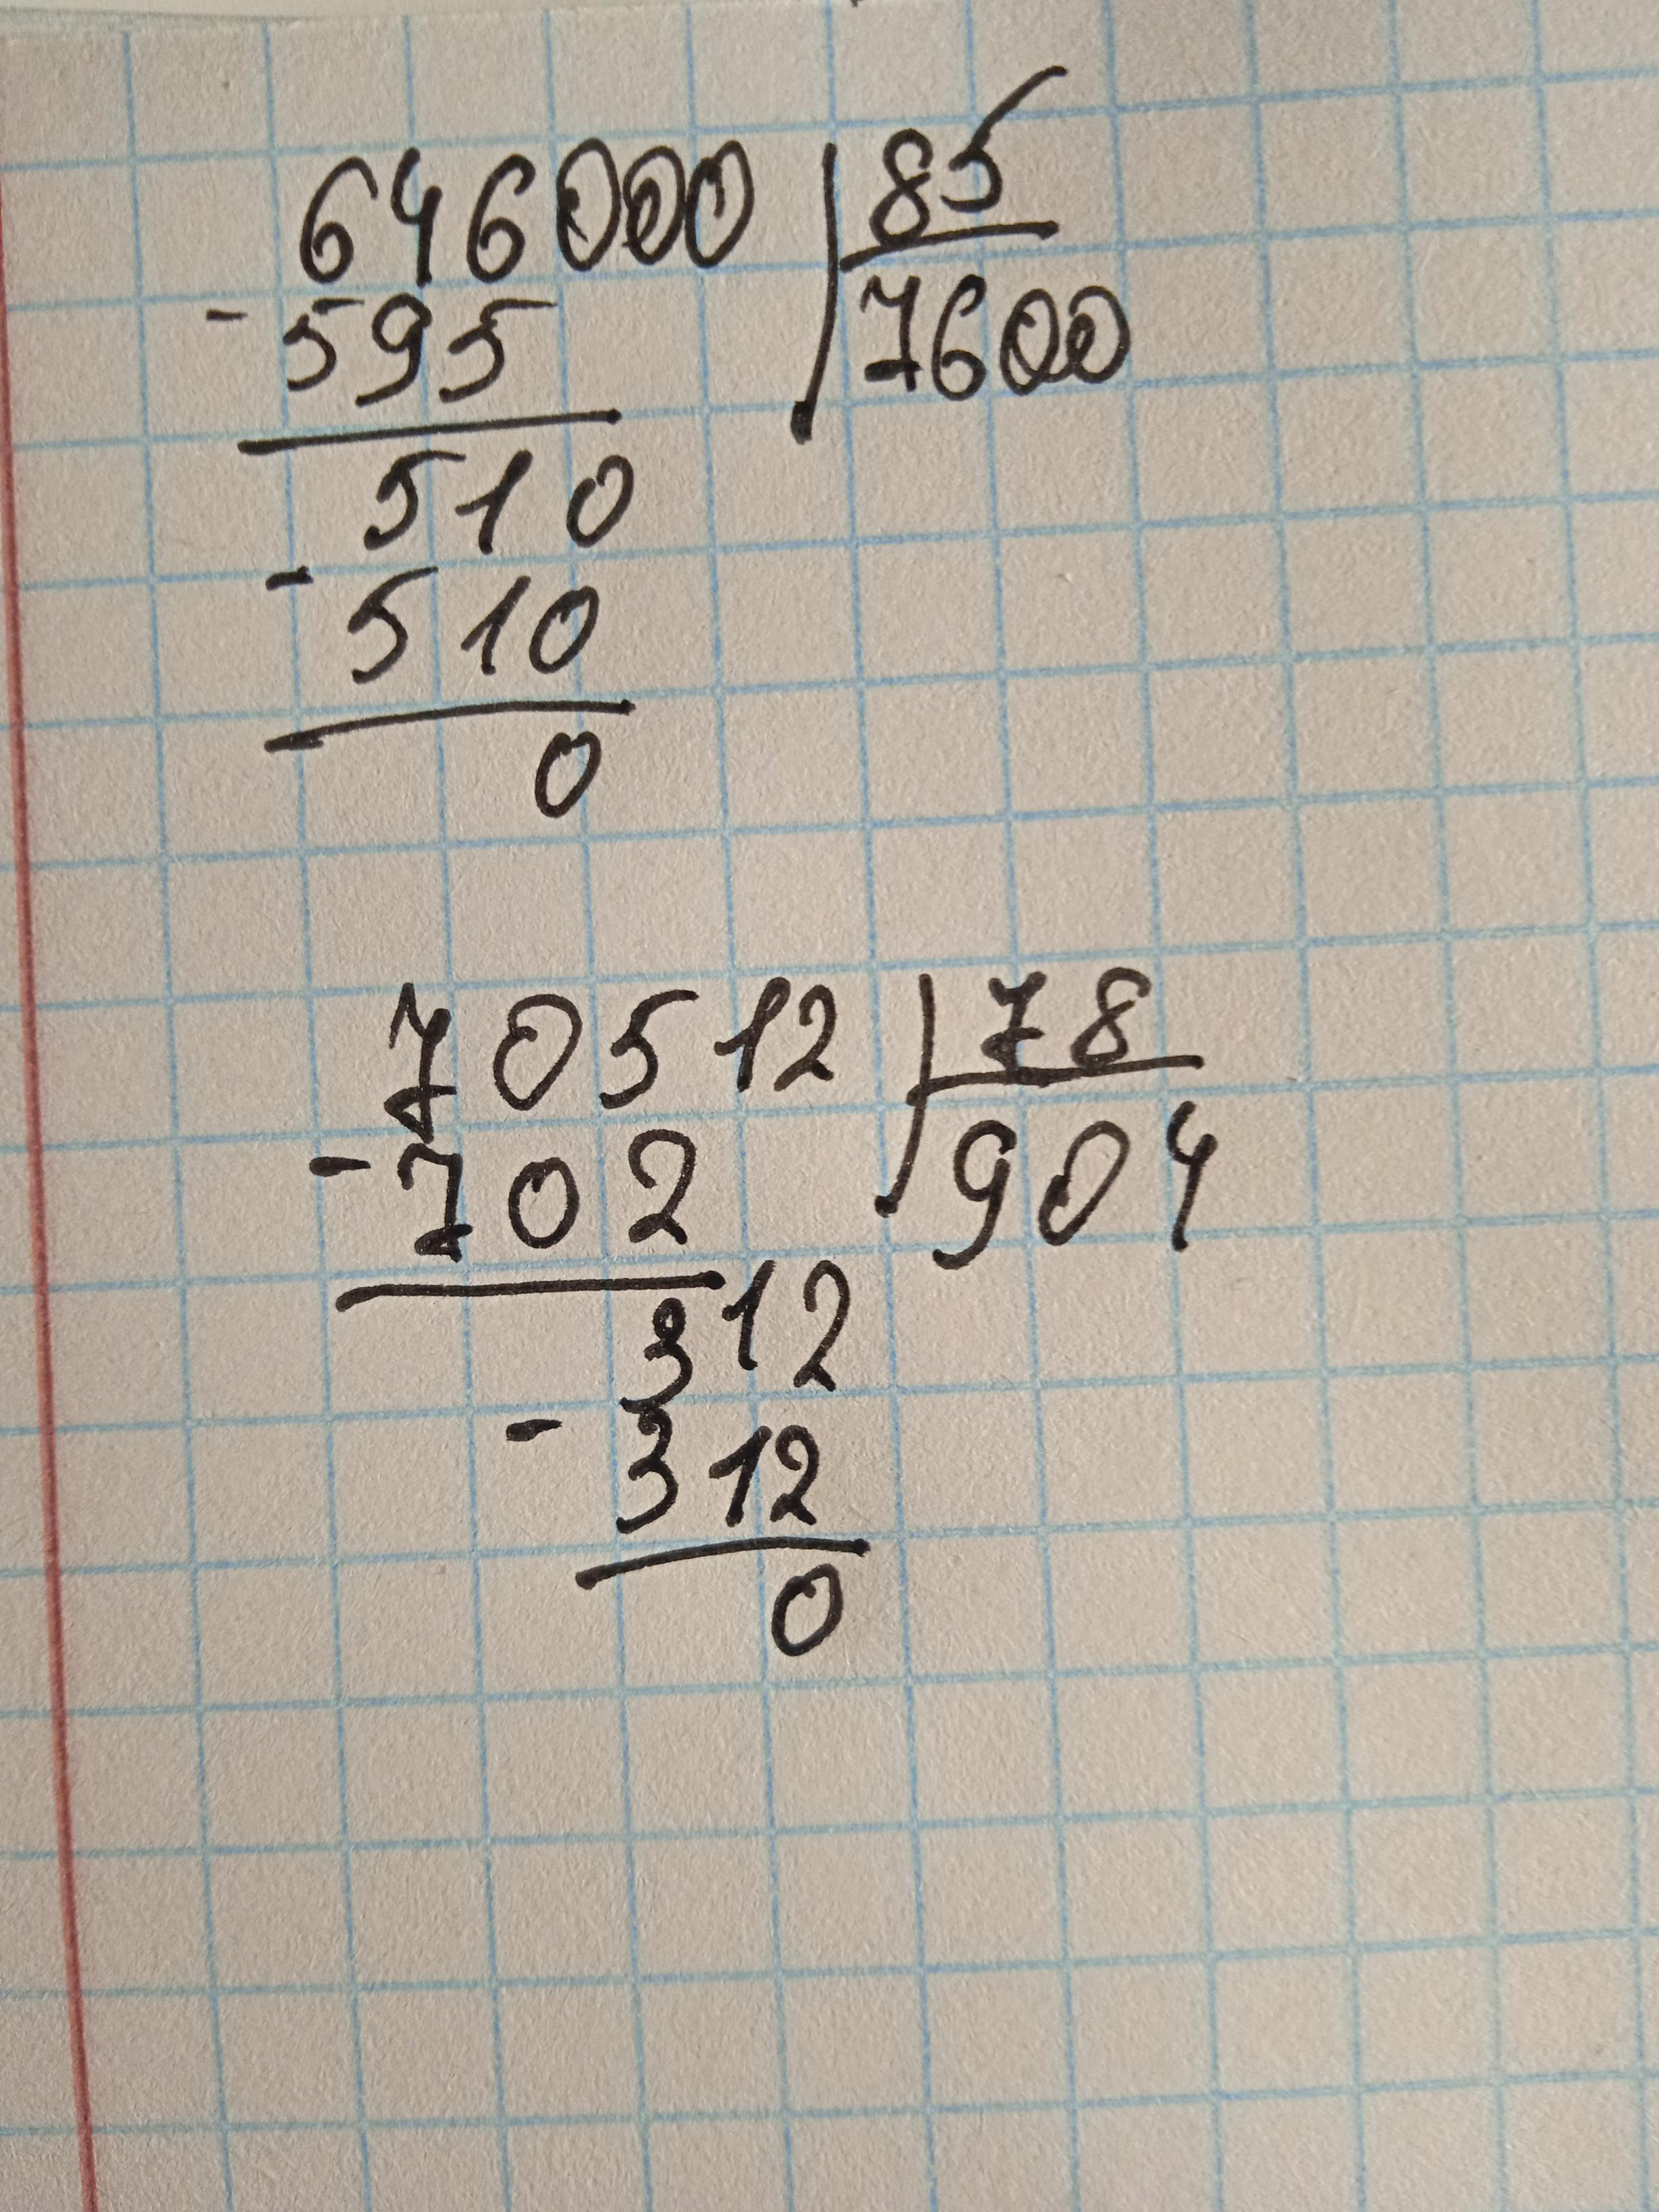 646000 | 85
- 595 | 7600
510
- 510
0
70512 | 78
- 702 | 904
312
- 312
0